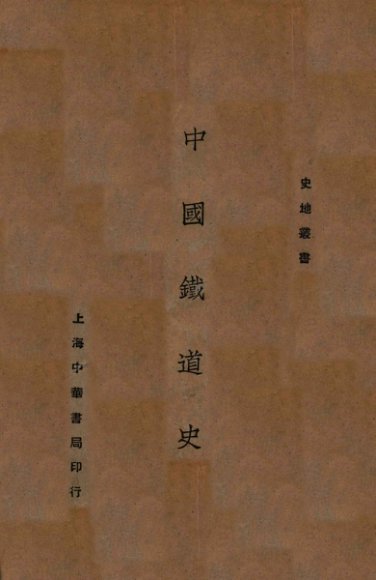 史地叢書
中國鐵道史
上海中華書局印行